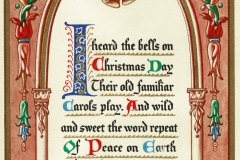 I heard the bells on
Christmas Day
Their old familiar
Carols play. And wild
and sweet the word repeat
Of Peace on Earth